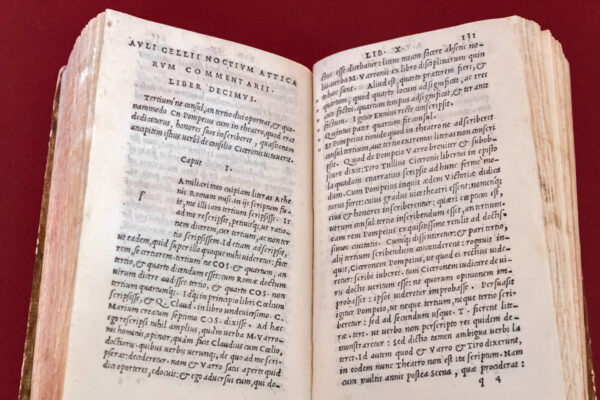 AVLI GELLII NOCTIVM ATTICA
RVM COMMENTARII.
LIBER DECIMVS.
Tertium ne consul, an tertio dici oporteat, & quo-
nammodo Cn Pompeius cum in theatro, quod erat
dedicaturus, honores suos inscriberet, quæstionem
ancipitem istius uerbi de consilio Ciceronis uitauerit.
Caput I.
f
Amiliari meo cuipiam literas Athe
nis Romam misi. in ijs scriptum fu-
it, me illi iam tertium scripsisse. Is
ad me rescripsit, petiuitq; ut ratio-
nem dicerem, cur tertium, ac non ter
tio scripsissem. Id etiam adscripsit,
ut eadem, quid super illo quoque mihi uideretur: face-
rem, se certiorem: tertium ne COS. & quartum, an
tertio, & quarto dicendum esset: cum Romæ doctum
uirum dicere audisset tertio, & quarto COS. non
tertium quartumq;. Idq; in principio libri Cælium
scripsisse, & Q. Claud. in libro undeuicesimo. C.
Marium creatum septimo COS. dixisse. Ad hæc
ego rescripsi nihil amplius, quàm uerba M. Varro-
nis hominis, opinor, quàm fuit Claudius cum Cœlio,
doctioris: quibus uerbis utrunq;, de quo ad me scri-
pserat: decideretur. nam & Varro satis aperte quid
dici oporteret, edocuit: & ego aduersus eum, qui do-
LIB. X. 131
ctus esse dicebatur: litem meam facere absens no-
lui. uerba M. Varronis ex libro disciplinarum quin
to hæc sunt. Aliud est, quarto prætorem fieri, &
quartum; quod quarto locum adsignificat, ac tres
ante factos. quartum tempus adsignificat, & ter ante
factum. Igitur Ennius recte scripsit.
Quintus pater quartum fit consul.
Et Pompeius timide quod in theatro ne adscriberet
consul tertium, aut tertio extremas literas non scripsit.
Quod de Pompeio Varro breuiter, & subobscu-
re dixit: Tiro Tullius Ciceronis libertus in episto
la quadam enarratius scripsit ad hunc ferme mo-
dum. Cum Pompeius inquit ædem Victoriæ dedica
turus foret: cuius gradus uice theatri essent: nomenq;
eius & honores inscriberentur: quæri cœptum est,
utrum consul tertio inscribendum esset, an tertium.
eam rem Pompeius exquisitissime retulit ad doctis-
simos ciuitatis. Cumq; dissentiretur: & pars tertio,
alij tertium scribendum contenderent: rogauit in-
quit Ciceronem Pompeius, ut quod ei rectius uide-
retur: scribi iuberet. tum Ciceronem iudicare de ui-
ris doctis ueritum esse: ne quorum opinionem im-
probasset: ipsos uideretur improbasse. Persuasit
igitur Pompeio, ut neque tertium, neque tertio scri-
beretur: sed ad secundum usque. T. fierent lite-
ræ. ut uerbo non perscripto res quidem de-
monstraretur: sed dictio tamen ambigua uerbi la
teret. Id autem quod & Varro & Tiro dixerunt,
in eodem nunc Theatro non est ita scriptum. Nam
cum multis annis postea Scena, quæ prociderat:
q 4